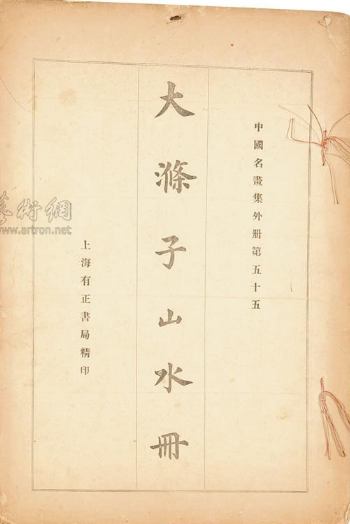 中國名畫集外册第五十五
大滌子山水冊
上海有正書局精印
藝術網
www.artron.net